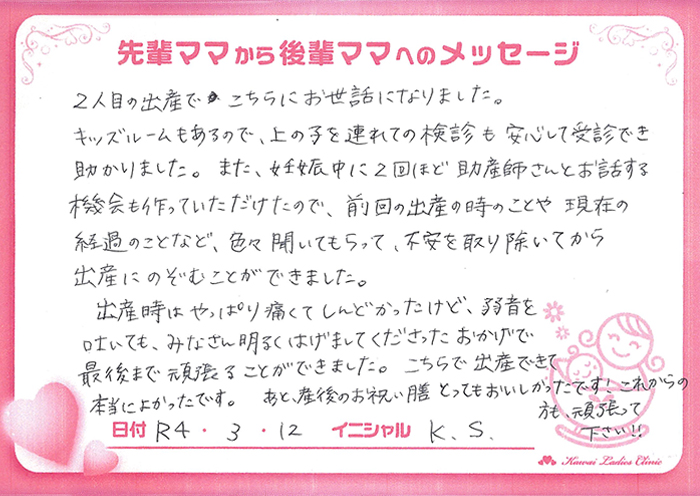 先輩ママから後輩ママへのメッセージ
2人目の出産で こちらにお世話になりました。
キッズルームもあるので、上の子を連れての検診も 安心して受診でき
助かりました。また、妊娠中に2回ほど 助産師さんとお話する
機会も作っていただけたので、前回の出産の時のことや 現在の
経過のことなど、色々聞いてもらって、不安を取り除いてから
出産にのぞむことができました。
出産時は やっぱり痛くてしんどかったけど、弱音を
吐いても、みなさん明るくはげましてくださったおかげで
最後まで頑張ることができました。こちらで出産できて
本当によかったです。 あと、産後のお祝い膳 とってもおいしかったです！これからの
方も、頑張って
下さい!!
日付 R4・3・12 イニシャル K.S.
Kawai Ladies Clinic